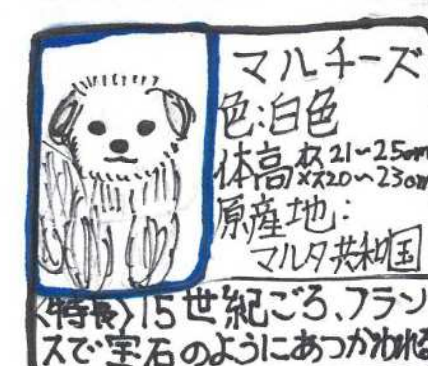 マルチーズ
色:白色
体高 オス21~25cm
メス20~23cm
原産地:
マルタ共和国
<特長>15世紀ごろ、フラン
スで宝石のようにあつかわれる